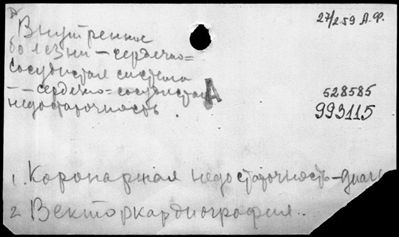 Внутренние
болезни – сердечно=
сосудистая система
– – сердечно=сосудистая
недостаточность
А
27/259 А.Ф.
528585
993115
1. Коронарная недостаточность – диагн
2. Векторкардиография..